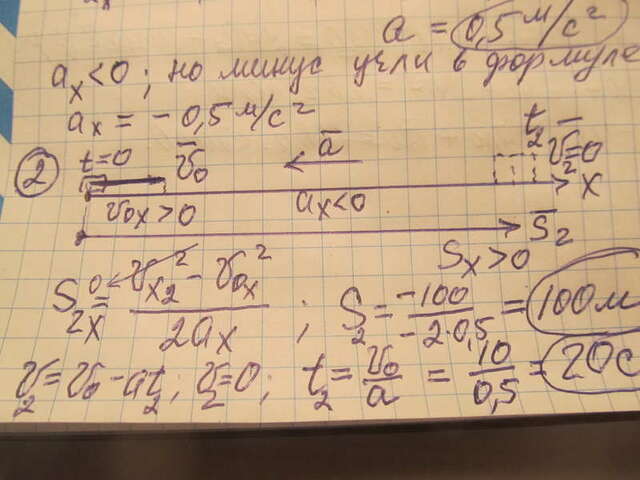 a = 0,5 м/с²
aₓ<0; но минус учли в формуле
aₓ = -0,5 м/с²
② t=0 v̅₀ a̅ t₂ v̅₂=0
v₀ₓ>0 aₓ<0 x
S̅₂
Sₓ>0
S₂ₓ = (vₓ₂² - v₀ₓ²) / 2aₓ ; S₂ = -100 / -2·0,5 = 100м
0
v₂=v₀-at₂; v₂=0; t₂ = v₀/a = 10/0,5 = 20с